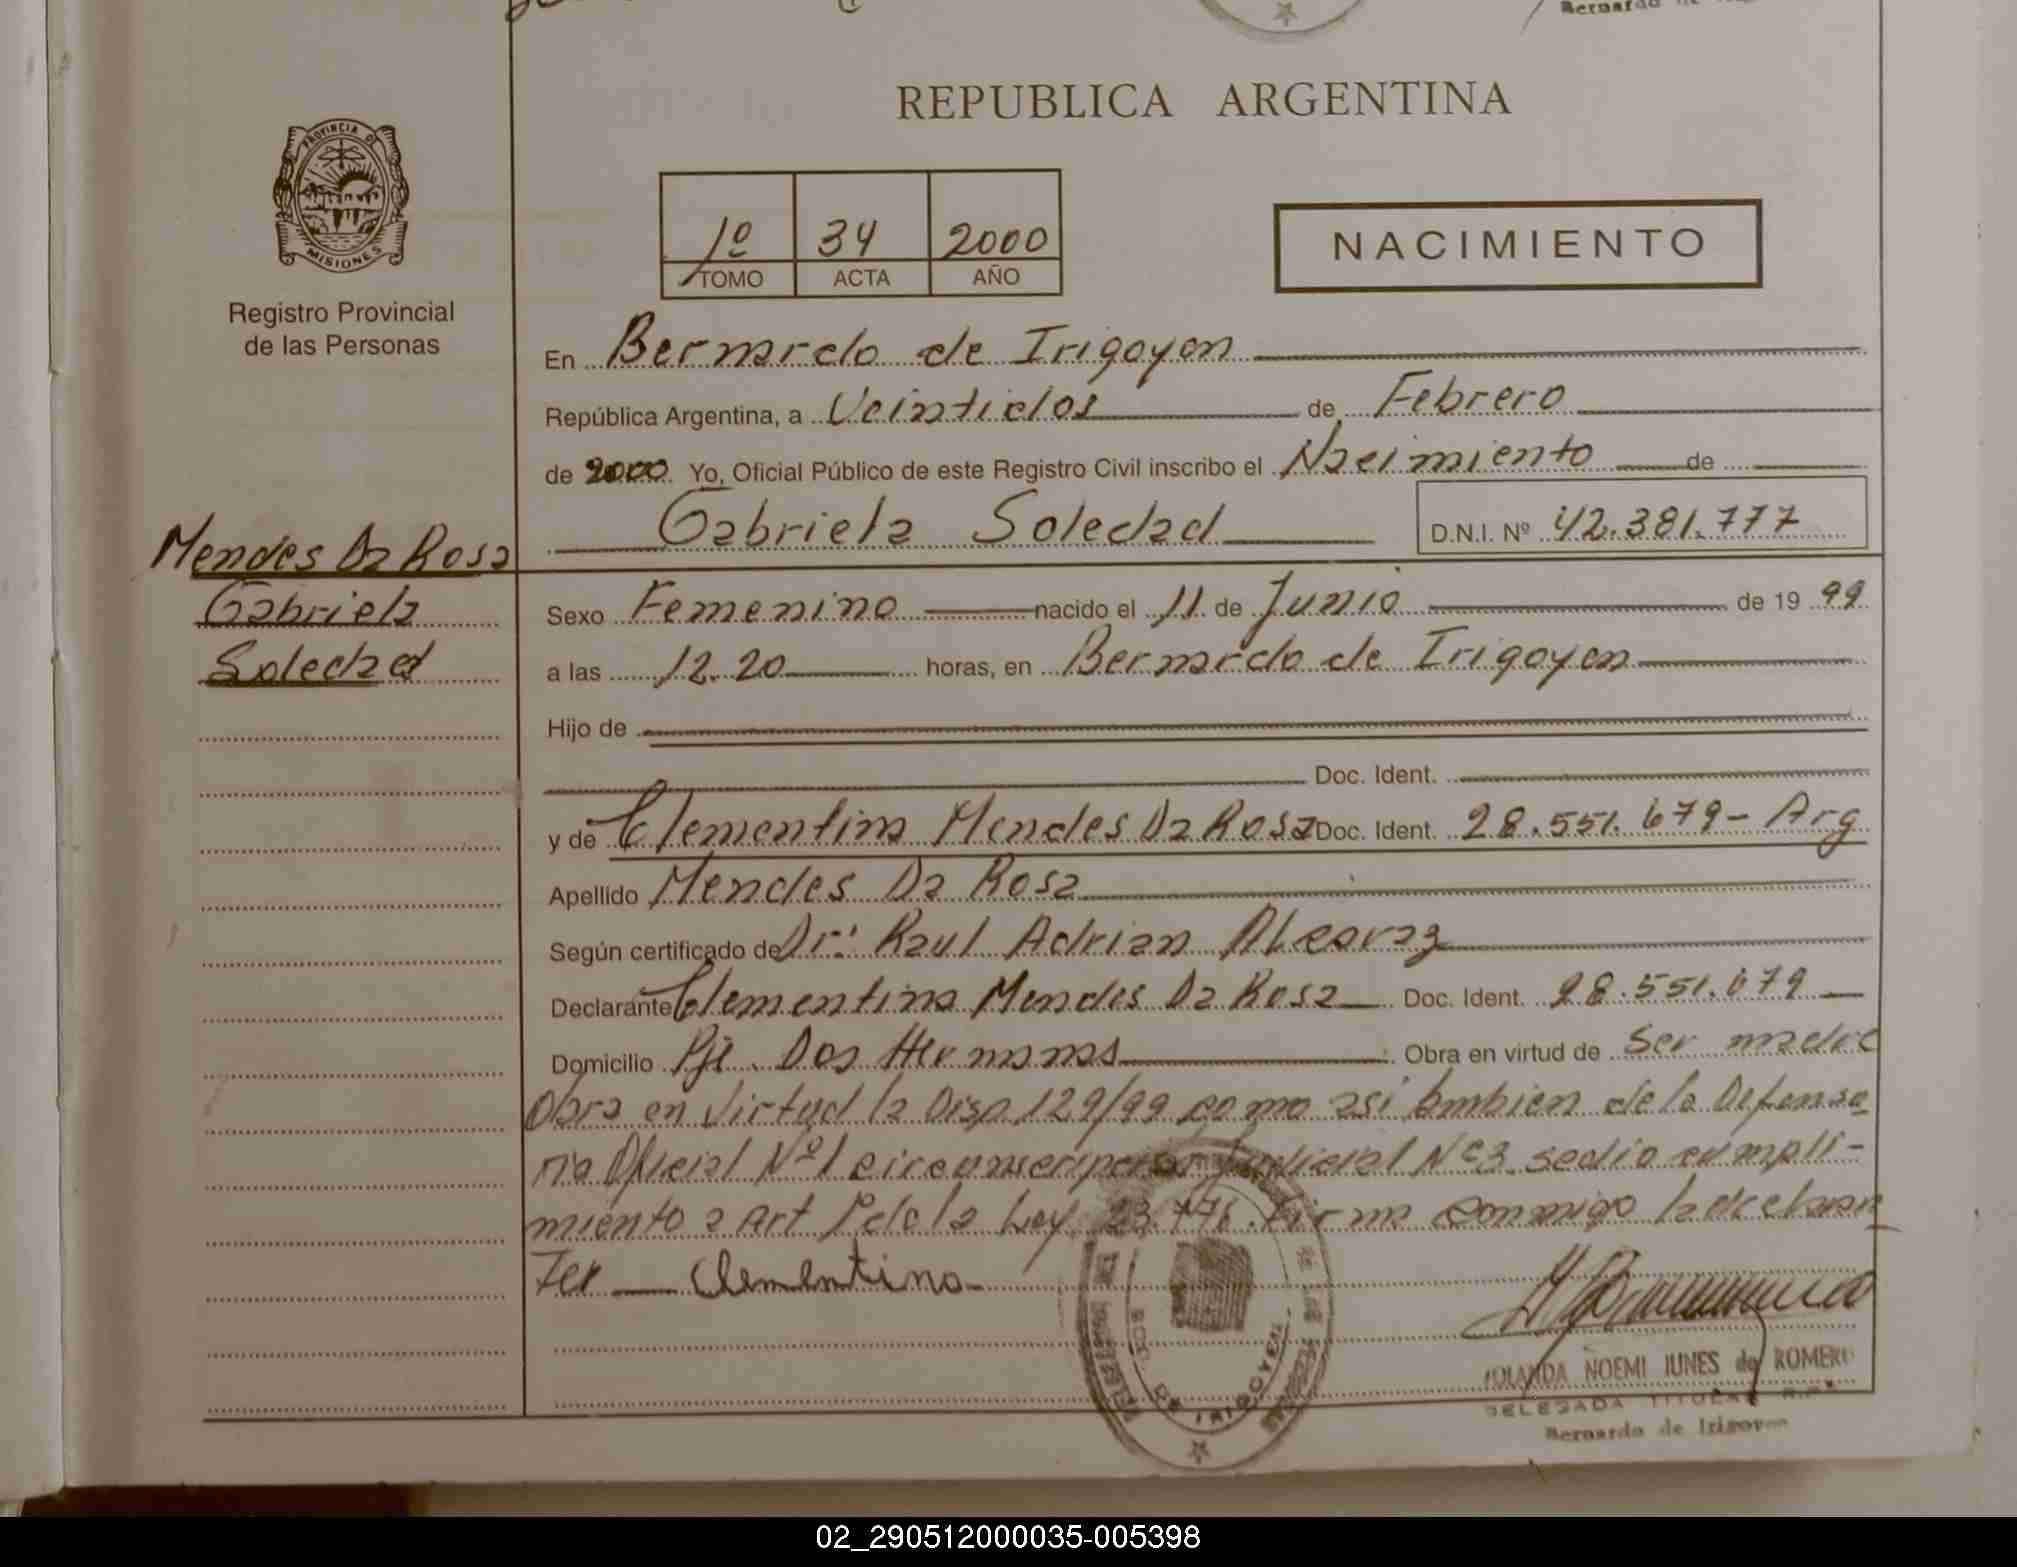 REPUBLICA ARGENTINA
PROVINCIA D
MISIONES
Registro Provincial
de las Personas
1º 34 2000
TOMO ACTA AÑO
NACIMIENTO
En Bernardo de Irigoyen
República Argentina, a Veintidos de Febrero
de 2000 Yo, Oficial Público de este Registro Civil inscribo el Nacimiento de
Gabriela Soledad D.N.I. Nº 42.381.777
Mendes Da Rosa
Gabriela
Soledad
Sexo Femenino nacido el 11 de Junio de 19 99
a las 12.20 horas, en Bernardo de Irigoyen
Hijo de
Doc. Ident.
y de Clementina Mendes Da Rosa Doc. Ident. 28.551.679- Arg
Apellido Mendes Da Rosa
Según certificado de Dr: Raul Adrian Alcaraz
Declarante Clementina Mendes Da Rosa Doc. Ident. 28.551.679
Domicilio Pje. Dos Hermanas Obra en virtud de Ser madre
Obra en virtud la Disp 129/99 como asi de la Defenso
ria Oficial Nº1 Judicial Nº3 se dio cumpli-
miento a Art de la Ley Firma conmigo la declaran
Ter Clementina
DE IRIGOYEN
NOEMI IUNES de ROMERO
DELEGADA TITULAR
Bernardo de Irigoyen
02_290512000035-005398